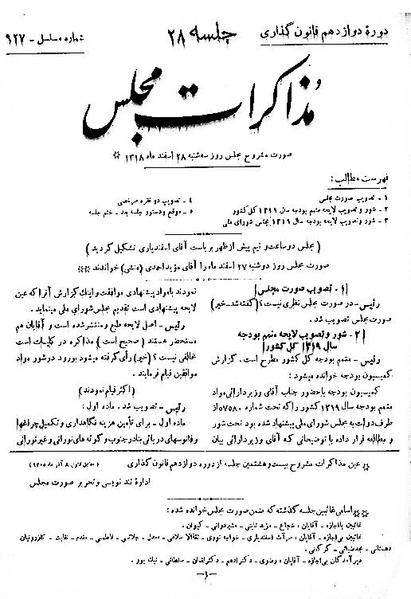 دورهٔ دوازدهم قانون گذاری
جلسه ۲۸
شماره مسلسل - ۹۲۷
مذاکرات مجلس
صورت مشروح مجلس روز سه‌شنبه ۲۸ اسفند ماه ۱۳۱۸ **
فهرست مطالب:
۱ - تصویب صورت مجلس
۲ - شور و تصویب لایحه متمم بودجه سال ۱۳۱۹ کل کشور
۳ - شور و تصویب لایحه بودجه سال ۱۳۱۹ مجلس شورای ملی
۴ - تصویب دو فقره مرخصی
۵ - موقع و دستور جلسه بعد - ختم جلسه
(مجلس دو ساعت و نیم پیش از ظهر بریاست آقای اسفندیاری تشکیل گردید)
صورت مجلس روز دوشنبه ۲۷ اسفند ماه را آقای مؤید احمدی (منشی) خواندند **
[۱ - تصویب صورت مجلس]
رئیس - در صورت مجلس نظری نیست؟ (گفته شد - خیر)
صورت مجلس تصویب شد.
[۲ - شور و تصویب لایحه متمم بودجه
سال ۱۳۱۹ کل کشور]
رئیس - متمم بودجه کل کشور مطرح است. گزارش
کمیسیون بودجه خوانده میشود:
کمیسیون بودجه با حضور جناب آقای وزیر دارائی مواد
متمم بودجه سال ۱۳۱۹ کل کشور را که تحت شماره ۵۷۵۸۰ از
طرف دولت به مجلس شورای ملی پیشنهاد شده بود تحت شور
و مطالعه قرار داده با توضیحاتی که آقای وزیر دارائی بیان
نمودند با مواد پیشنهادی موافقت و اینک گزارش آنرا که عین
پیشنهادی است تقدیم مجلس شورای ملی مینماید.
رئیس - اصل لایحه طبع و منتشر شده است و آقایان هم
مستحضر هستند (صحیح است) مذاکره در کلیات است
مخالفی نیست؟ (خیر) رأی گرفته میشود بورود در شور مواد
موافقین قیام فرمایند.
(اکثر قیام نمودند)
رئیس - تصویب شد. ماده اول:
ماده اول - برای تأمین هزینه نگاهداری و تکمیل چراغها
و فانوسهای دریائی بنادر جنوب و گویه‌های نورانی و غیر نورانی
* عین مذاکرات مشروح بیست و هشتمین جلسه از دوره دوازدهم قانون گذاری
اداره تند نویسی و تحریر صورت مجلس
** اسامی غائبین جلسه گذشته که ضمن صورت مجلس خوانده شده: